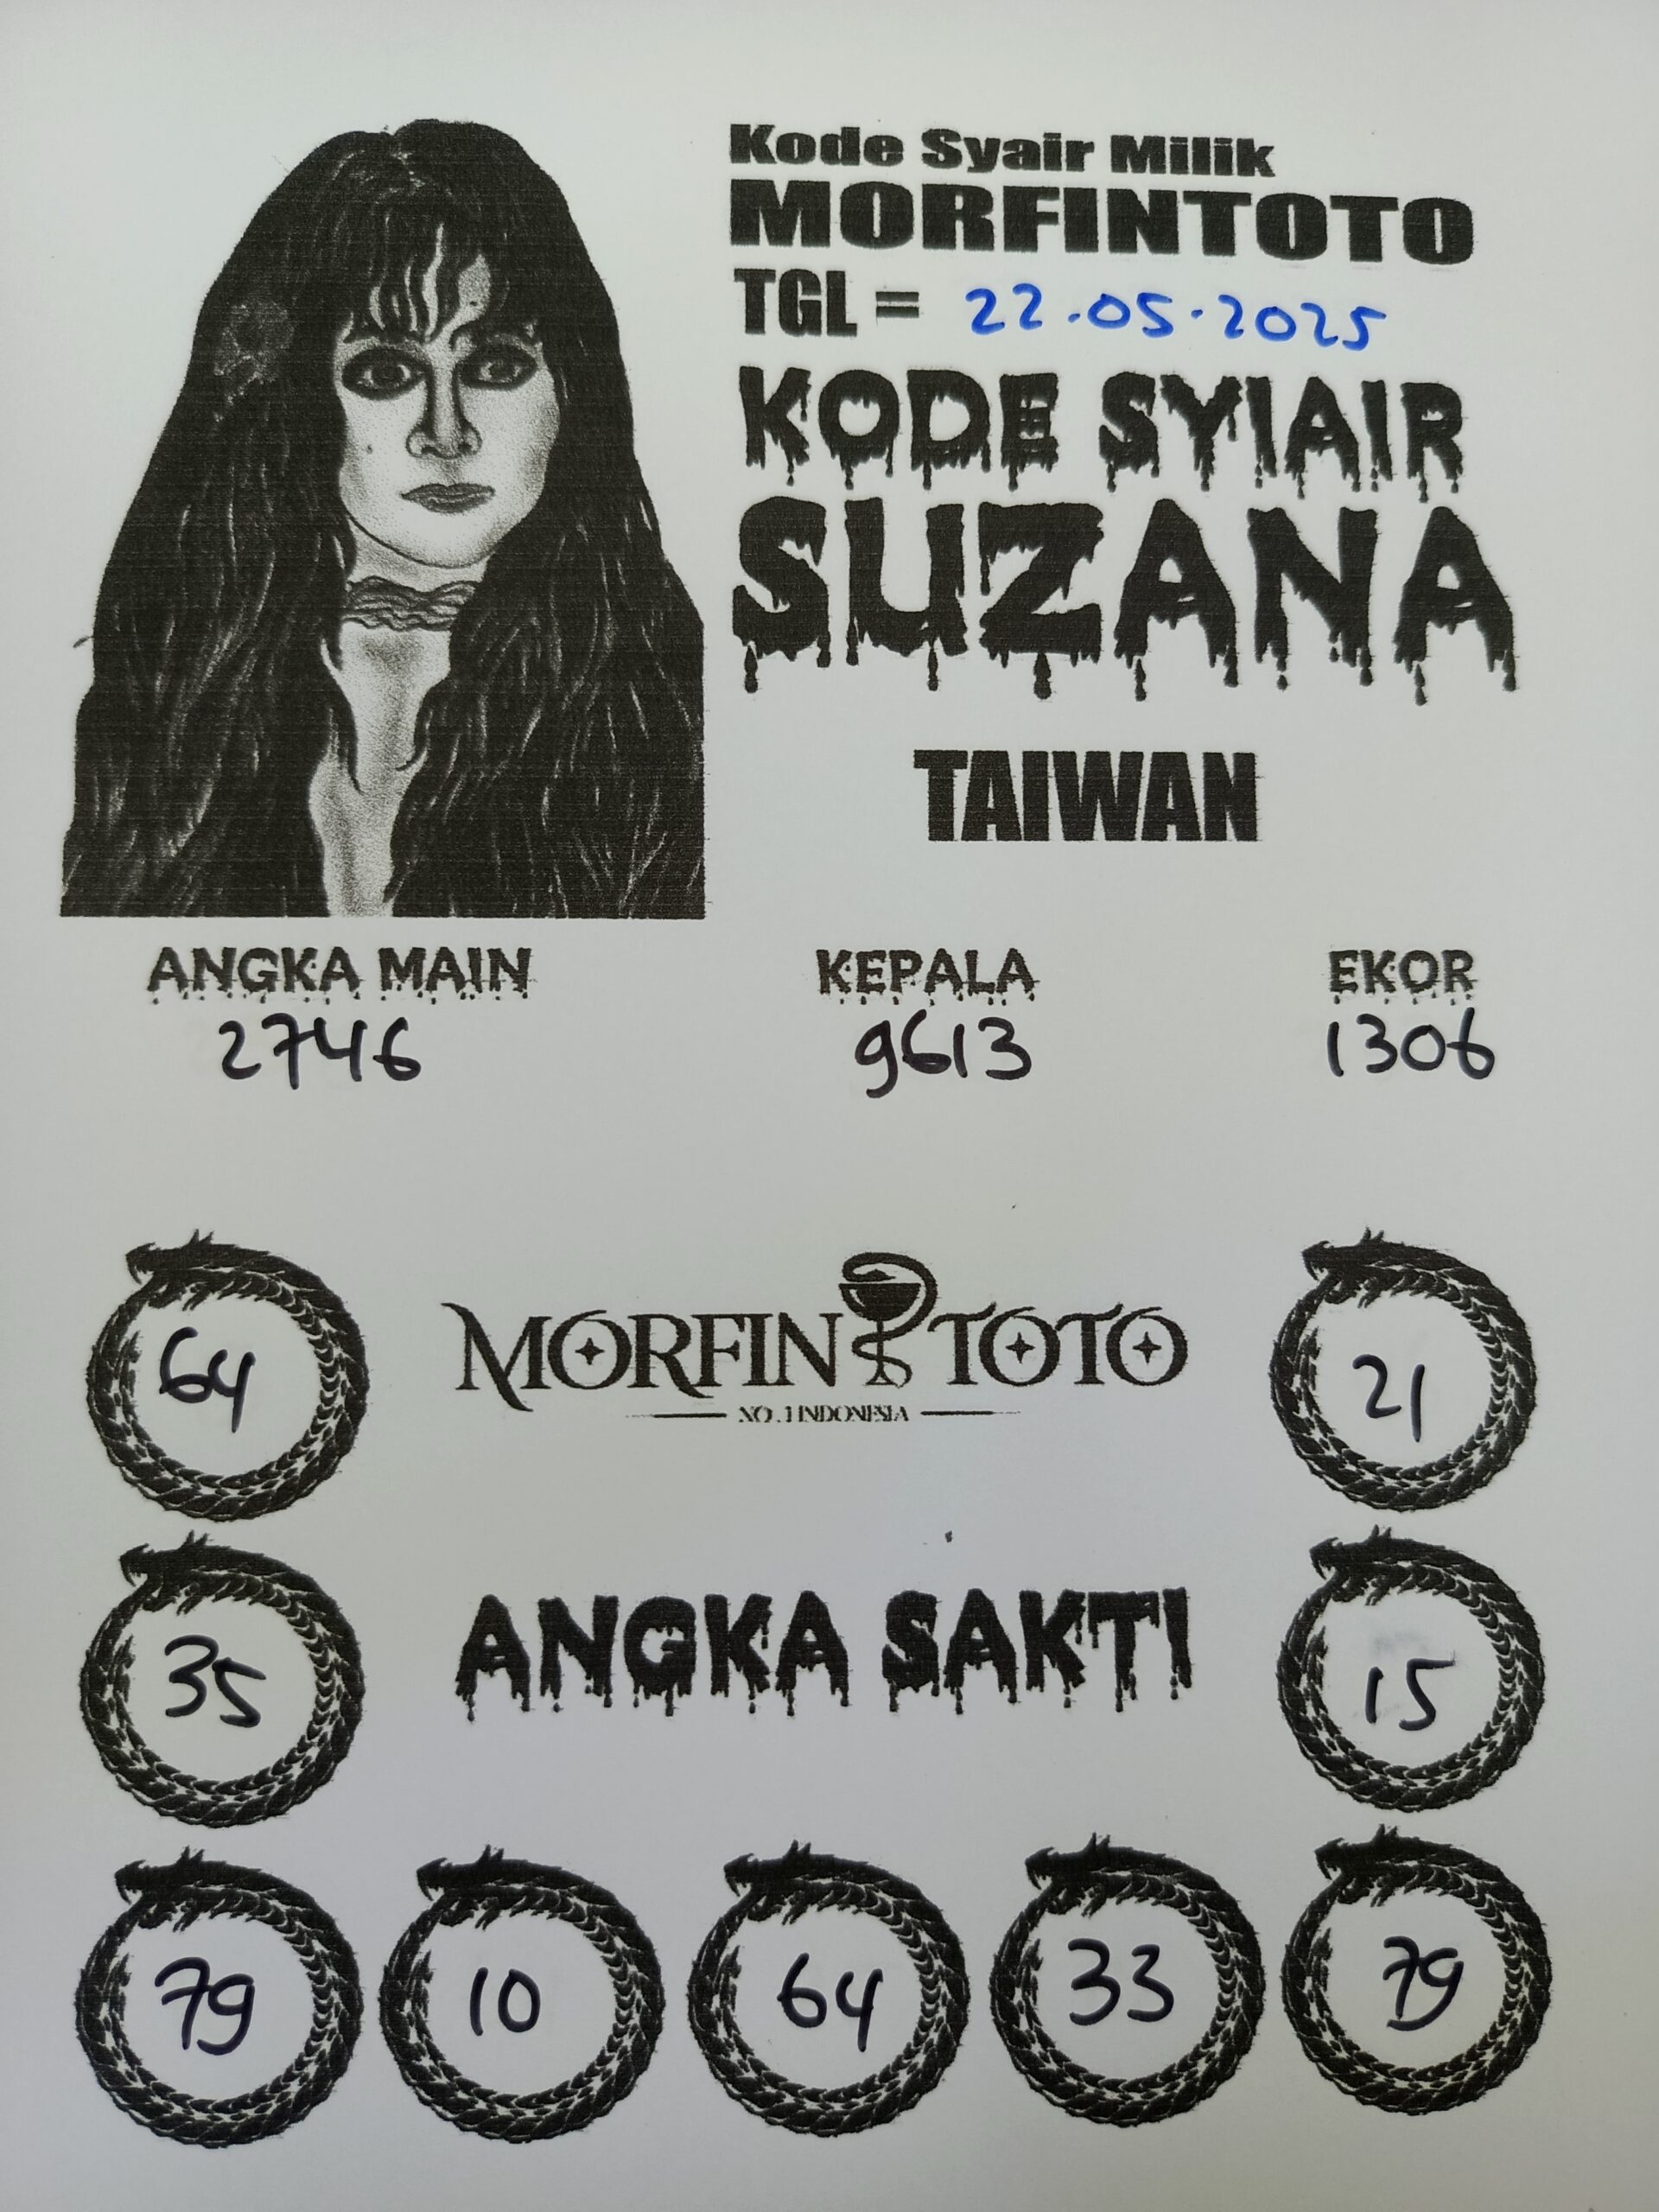 Kode Syair Milik
MORFINTOTO
TGL = 22.05.2025
KODE SYIAIR
SUZANA
TAIWAN
ANGKA MAIN KEPALA EKOR
2746 9613 1306
64 MORFIN TOTO 21
NO.1 INDONESIA
35 ANGKA SAKTI 15
79 10 64 33 79